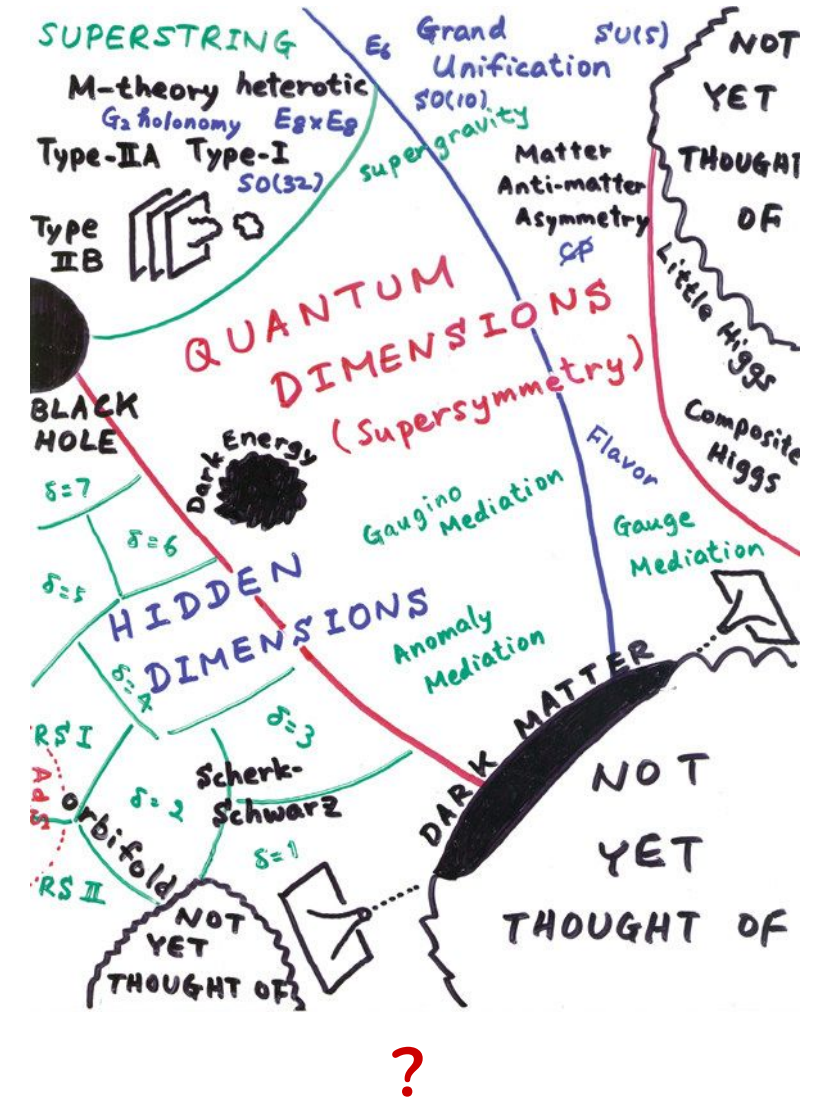 SUPERSTRING
M-theory heterotic
G₂ holonomy E₈×E₈
Type-IIA Type-I
SO(32)
Type
IIB
E₆ Grand
Unification
SU(5)
SO(10)
supergravity
Matter
Anti-matter
Asymmetry
CP
NOT
YET
THOUGHT
OF
Little Higgs
Composite
Higgs
QUANTUM
DIMENSIONS
(Supersymmetry)
BLACK
HOLE
Dark Energy
Flavor
Gaugino
Mediation
Gauge
Mediation
Anomaly
Mediation
δ=7
δ=6
δ=5
HIDDEN
DIMENSIONS
δ=4
δ=3
RS I
AdS
orbifold
δ=2
Scherk-
Schwarz
δ=1
RS II
DARK MATTER
NOT
YET
THOUGHT OF
NOT
YET
THOUGHT OF
?